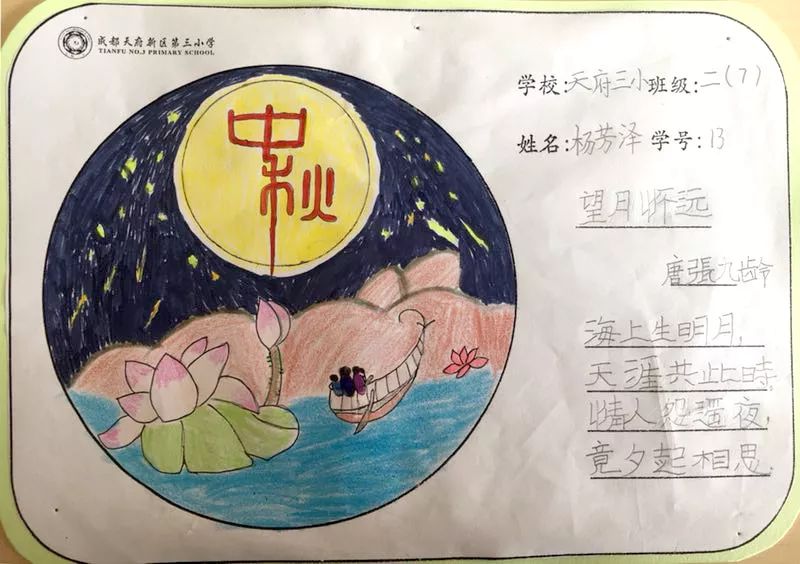 成都天府新区第三小学
TIANFU NO.3 PRIMARY SCHOOL
中秋
学校:天府三小班级:二(7)
姓名:杨芳泽 学号:13
望月怀远
唐張九龄
海上生明月,
天涯共此時,
情人怨遥夜,
竟夕起相思.